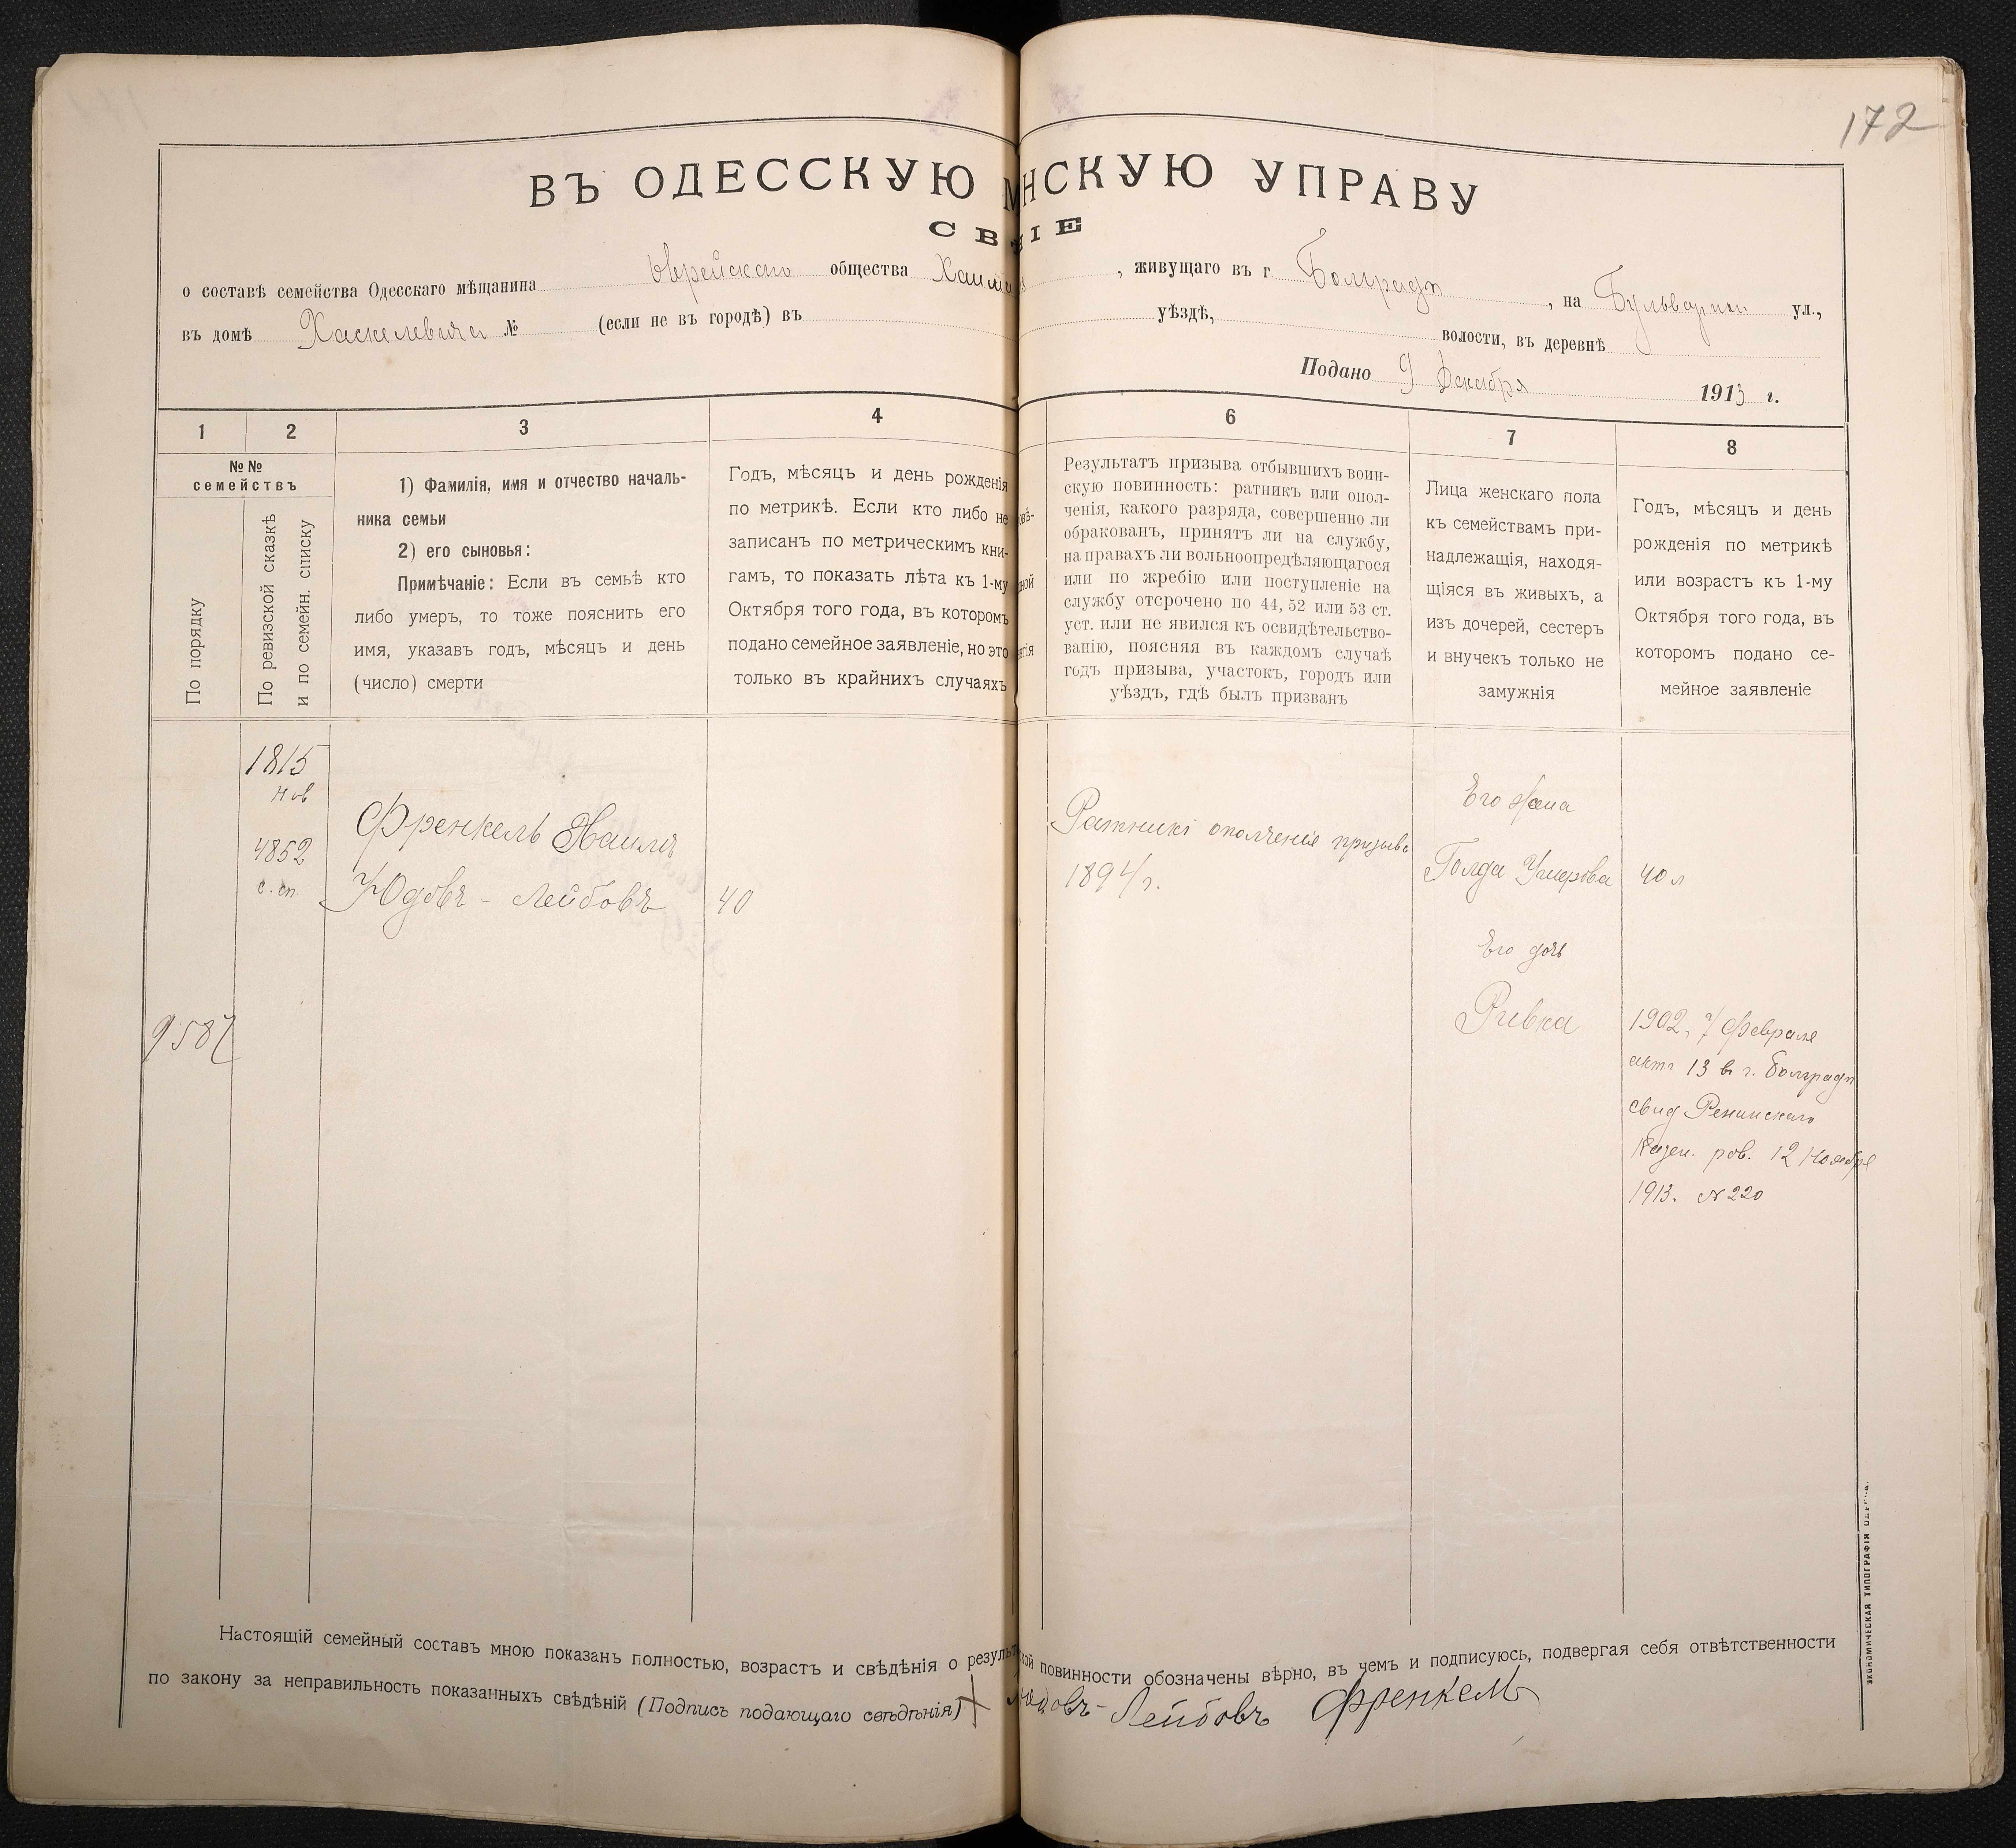 172
ВЪ ОДЕССКУЮ М НСКУЮ УПРАВУ
СВ ІЕ
о составѣ семейства Одесскаго мѣщанина Еврейскаго общества Хаима , живущаго въ г Болградѣ , на Бульварной ул.,
въ домѣ Хаскелевича № (если не въ городѣ) въ уѣздѣ, волости, въ деревнѣ
Подано 9 Декабря 1913 г.
1 2 3 4 6 7 8
№№
семействъ
По порядку
По ревизской сказкѣ
и по семейн. списку
1) Фамилія, имя и отчество началь-
ника семьи
2) его сыновья:
Примѣчаніе: Если въ семьѣ кто
либо умеръ, то тоже пояснить его
имя, указавъ годъ, мѣсяцъ и день
(число) смерти
Годъ, мѣсяцъ и день рожденія
по метрикѣ. Если кто либо не
записанъ по метрическимъ кни-
гамъ, то показать лѣта къ 1-му
Октября того года, въ которомъ
подано семейное заявленіе, но это
только въ крайнихъ случаяхъ
Результатъ призыва отбывшихъ воин-
скую повинность: ратникъ или опол-
ченія, какого разряда, совершенно ли
обракованъ, принятъ ли на службу,
на правахъ ли вольноопредѣляющагося
или по жребію или поступленіе на
службу отсрочено по 44, 52 или 53 ст.
уст. или не явился къ освидѣтельство-
ванію, поясняя въ каждомъ случаѣ
годъ призыва, участокъ, городъ или
уѣздъ, гдѣ былъ призванъ
Лица женскаго пола
къ семействамъ при-
надлежащія, находя-
щіяся въ живыхъ, а
изъ дочерей, сестеръ
и внучекъ только не
замужнія
Годъ, мѣсяцъ и день
рожденія по метрикѣ
или возрастъ къ 1-му
Октября того года, въ
которомъ подано се-
мейное заявленіе
1815
нов
4852
с. сп
9587
Френкель Хаимъ
Юдовъ - Лейбовъ
40
Ратникъ ополченія призыва
1894 г.
Его жена
Голда Умерова 40 л
Его дочь
Ривка
1902, 7 Февраля
актъ 13 в г. Болградѣ
свид Ренинскаго
Казен. рав. 12 Ноября
1913. № 220
Настоящій семейный составъ мною показанъ полностью, возрастъ и свѣдѣнія о резуль ской повинности обозначены вѣрно, въ чемъ и подписуюсь, подвергая себя отвѣтственности
по закону за неправильность показанныхъ свѣдѣній (Подпись подающаго свѣдѣнія) Юдовъ-Лейбовъ Френкель
ЭКОНОМИЧЕСКАЯ ТИПОГРАФІЯ